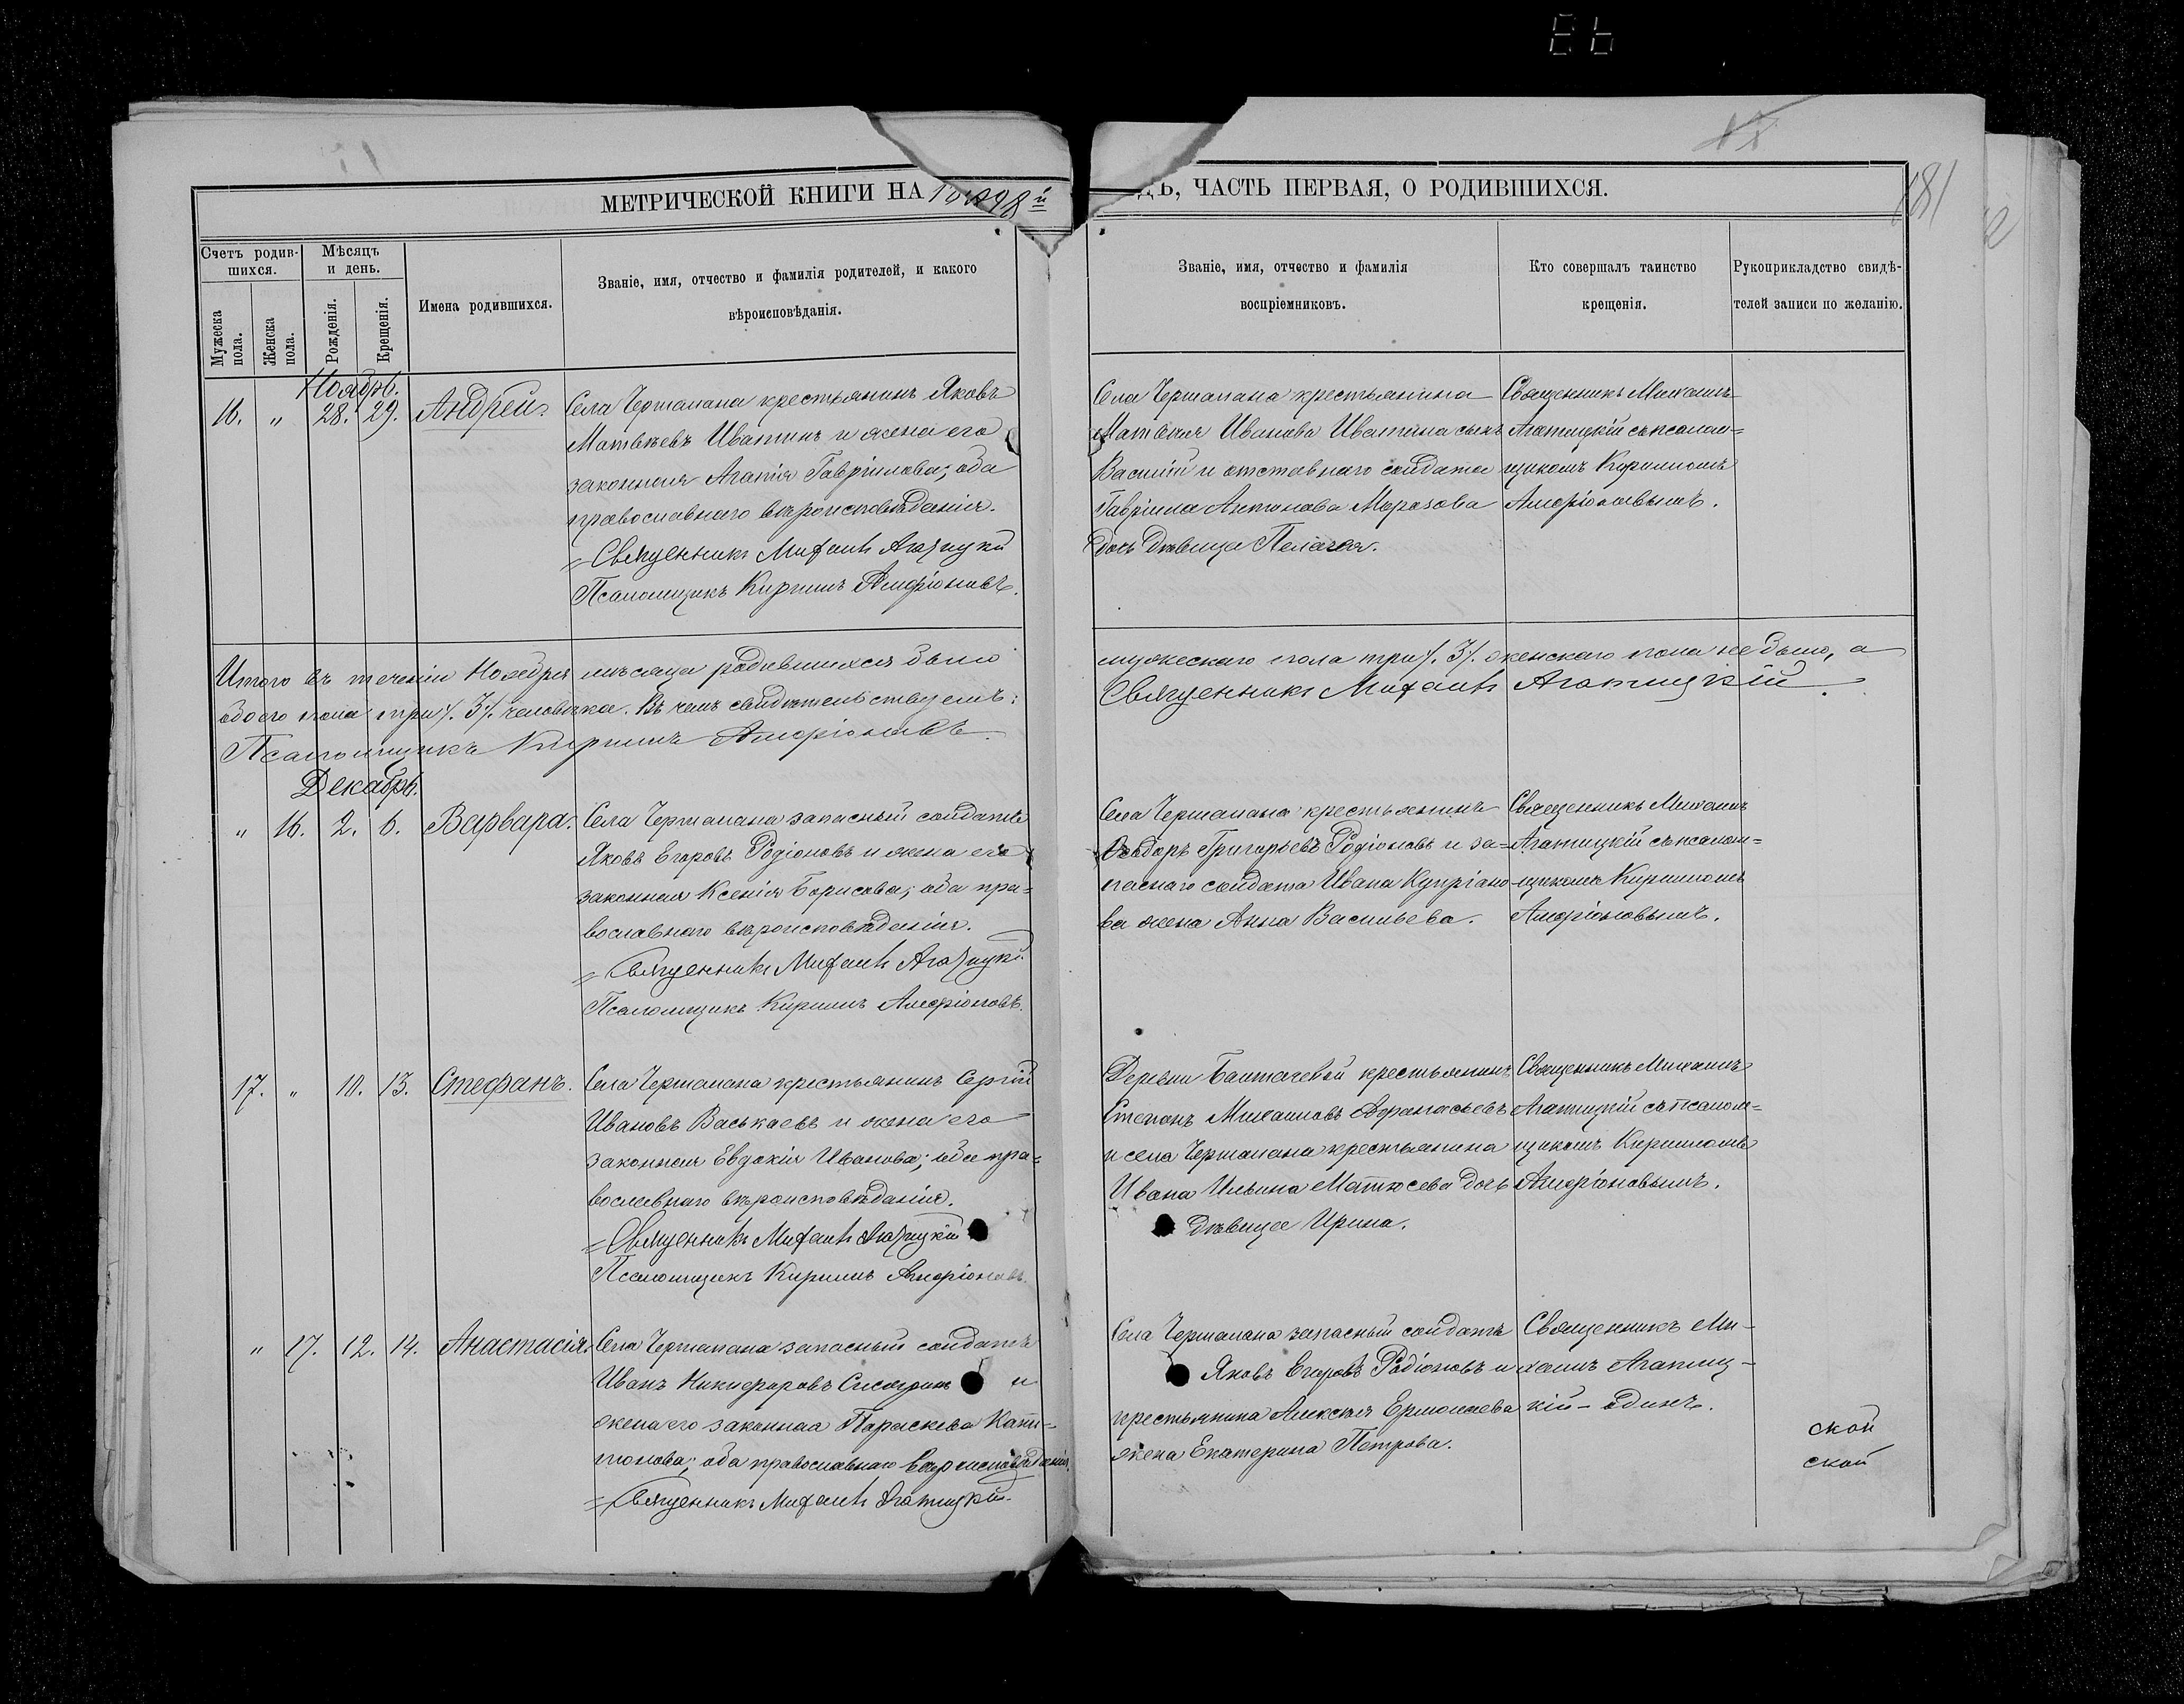 181
МЕТРИЧЕСКОЙ КНИГИ НА 1898й
ДЪ, ЧАСТЬ ПЕРВАЯ, О РОДИВШИХСЯ.
Счетъ родив-
шихся.
Мѣсяцъ
и день.
Мужеска
пола.
Женска
пола.
Рожденія.
Крещенія.
Имена родившихся.
Званіе, имя, отчество и фамилія родителей, и какого
вѣроисповѣданія.
Званіе, имя, отчество и фамилія
воспріемниковъ.
Кто совершалъ таинство
крещенія.
Рукоприкладство свидѣ-
телей записи по желанію.
Ноябрь.
16. " 28. 29. Андрей.
Села Чермалана крестьянинъ Яковъ
Матвѣевъ Иватинъ и жена его
законная Агапія Гавріилова; оба
православнаго вѣроисповѣданія.
Священникъ Михаилъ Агатицкій
Псаломщикъ Кириллъ Амфіоновъ.
Села Чермалана крестьянина
Матвѣя Иванова Иватина сынъ
Василій и отставнаго солдата
Гавріила Антонова Морозова
дочь дѣвица Пелагея.
Священникъ Михаилъ
Агатицкій съ псалом=
щикомъ Кирилломъ
Амфіоновымъ.
Итого въ теченіи Ноября мѣсяца родившихся было
мужескаго пола три /. 3 /. женскаго пола не было, а
обоего пола три /. 3 /. человѣка. Въ чемъ свидѣтельствуемъ:
Священникъ Михаилъ Агатицкій.
Псаломщикъ Кириллъ Амфіоновъ.
Декабрь.
" 16. 2. 6. Варвара.
Села Чермалана запасный солдатъ
Яковъ Егоровъ Родіоновъ и жена его
законная Ксенія Борисова; оба пра=
вославнаго вѣроисповѣданія.
Священникъ Михаилъ Агатицкій
Псаломщикъ Кириллъ Амфіоновъ.
Села Чермалана крестьянинъ
Ѳеодоръ Григорьевъ Родіоновъ и за-
паснаго солдата Ивана Купріано-
ва жена Анна Васильева.
Священникъ Михаилъ
Агатицкій съ псалом=
щикомъ Кирилломъ
Амфіоновымъ.
17. " 10. 13. Стефанъ.
Села Чермалана крестьянинъ Сергій
Ивановъ Васькаевъ и жена его
законная Евдокія Иванова; оба пра=
вославнаго вѣроисповѣданія.
Священникъ Михаилъ Агатицкій
Псаломщикъ Кириллъ Амфіоновъ.
Деревни Балтаевой крестьянинъ
Степанъ Михаиловъ Аѳанасьевъ
и села Чермалана крестьянина
Ивана Ильина Матюсева дочь
дѣвица Ирина.
Священникъ Михаилъ
Агатицкій съ псалом=
щикомъ Кирилломъ
Амфіоновымъ.
" 17. 12. 14. Анастасія.
Села Чермалана запасный солдатъ
Иванъ Никифоровъ и
жена его законная Параскева Капи=
тонова; оба православнаго вѣроисповѣданія.
Священникъ Михаилъ Агатицкій.
Села Чермалана запасный солдатъ
Яковъ Егоровъ Родіоновъ и
крестьянина Алексѣя Ермолаева
жена Екатерина Петрова.
Священникъ Ми-
хаилъ Агатиц-
кій - одинъ.
ской
ской